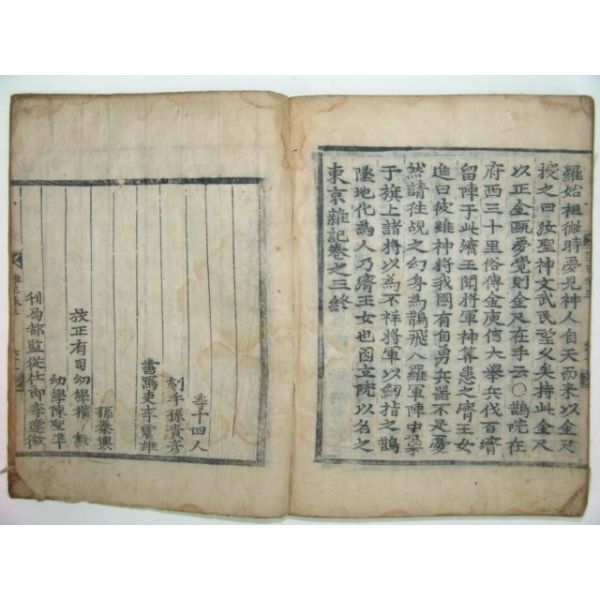 羅始祖微時夢見神人自天而來以金尺
授之曰汝聖神文武民望久矣持此金尺
以正金甌覺則金尺在手云○鵲院在
府西三十里俗傳金庾信大擧兵伐百濟
留陣于此濟王聞將軍神算患之濟王女
進曰彼雖神將我國有自勇兵器不足憂
然請往覘之幻身爲鵲飛入羅軍陣中噪
于旗上諸將以爲不祥將軍以劒指之鵲
墜地化爲人乃濟王女也因立院以名之
東京雜記卷之三終
等十四人
刻手孫貴彦
書寫吏李震雄
孫
校正有司幼學權
幼學陳聖準
刊局都監從仕郞李達徵